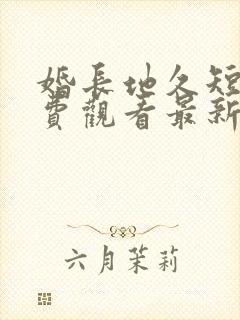 婚長地久短
費觀看最新
六月茉莉